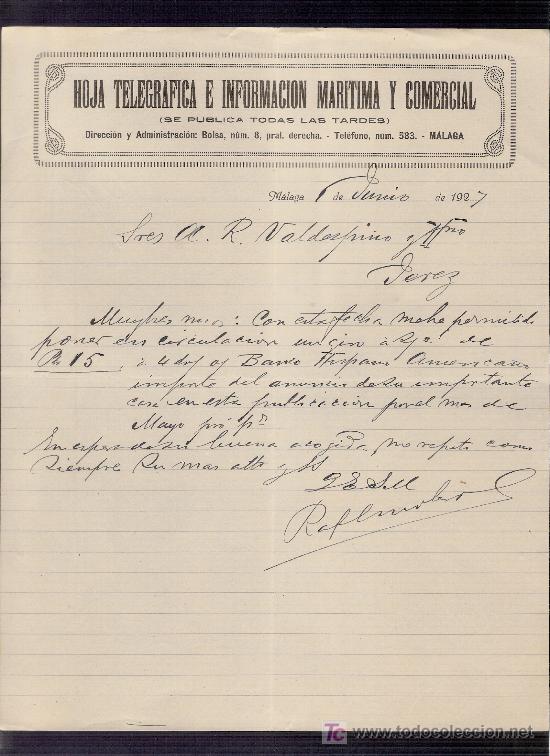 HOJA TELEGRAFICA E INFORMACION MARITIMA Y COMERCIAL
(SE PUBLICA TODAS LAS TARDES)
Dirección y Administración: Bolsa, núm. 8, pral. derecha. - Teléfono, num. 583. - MÁLAGA
Málaga 1 de Junio de 1927
Sres A. R. Valdespino y Hno
Jerez
Muy Sres mios: Con esta fecha me he permitido
poner en circulacion un giro a s/c. de
Pts 15, a 4 d/ Banco Hispano Americano
importe del anuncio de su importante
casa en esta publicacion por el mes de
Mayo pro po
En espera de su buena acogida, me repito como
siempre su mas atto y ss
q E S M
TC www.todocoleccion.net